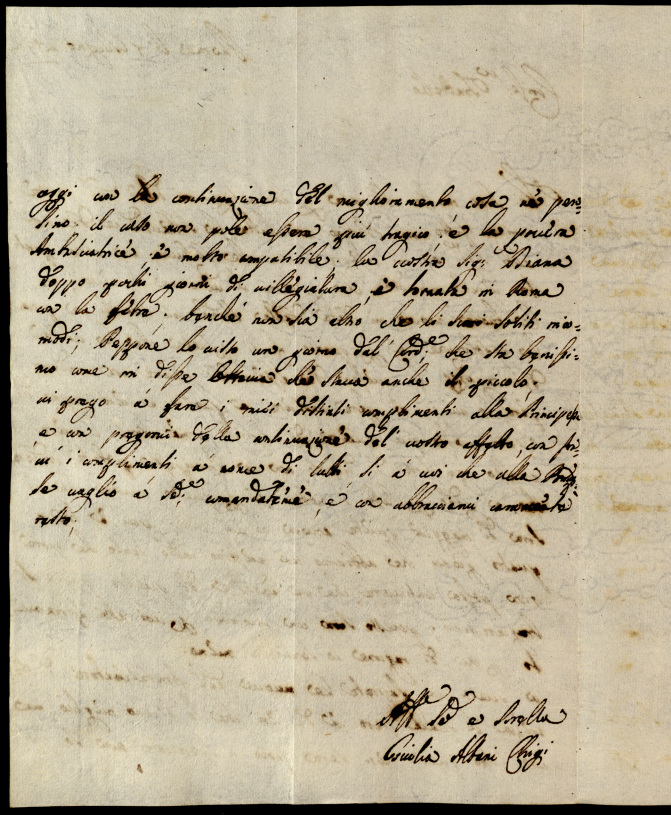 oggi con la continuazione del miglioramento cosa ne per=
sino il caso non pole essere più tragico, e la povera
Ambasciatrice è molto compatibile. la vostra Sig: Diana
doppo pochi giorni di villeggiatura, è tornata in Roma
con la febre, benché non sia altro che li suoi soliti inco=
modi; Peppone lo visto un giorno dal Card:le che sta benissi=
mo come mi disse che stava anche il piccolo.
vi prego a fare i miei distinti complimenti alla Principessa
e con pregarvi della continuazione del vostro affetto, con
i complimenti a nome di tutti, si a voi che alla
se vaglio a comandatemi, e con abbracciarvi caramente
resto;
Aff:ma Se e Sorella
Cecilia Albani Chigi